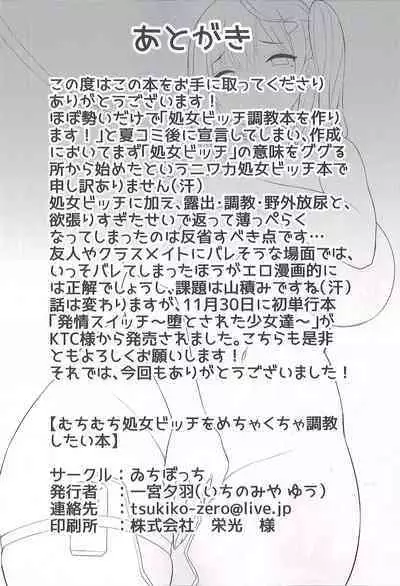 あとがき
この度はこの本をお手に取ってくださり
ありがとうございます!
ほぼ勢いだけで「処女ビッチ調教本を作り
ます!」と夏コミ後に宣言してしまい、作成
においてまず「処女ビッチ」の意味をググる
所から始めたというニワカ処女ビッチ本で
申し訳ありません(汗)
処女ビッチに加え、露出・調教・野外放尿と、
欲張りすぎたせいで返って薄っぺらく
なってしまったのは反省すべき点です…
友人やクラスメイトにバレそうな場面では、
いっそバレてしまったほうがエロ漫画的に
は正解でしょうし、課題は山積みですね(汗)
話は変わりますが、11月30日に初単行本
「発情スイッチ～堕とされた少女達～」が
KTC様から発売されました。こちらも是非
ともよろしくお願いします!
それでは、今回もありがとうございました!
【むちむち処女ビッチをめちゃくちゃ調教
したい本】
サークル:ゐちぼっち
発行者 :一宮夕羽(いちのみや ゆう)
連絡先 :tsukiko-zero@live.jp
印刷所 :株式会社 栄光 様